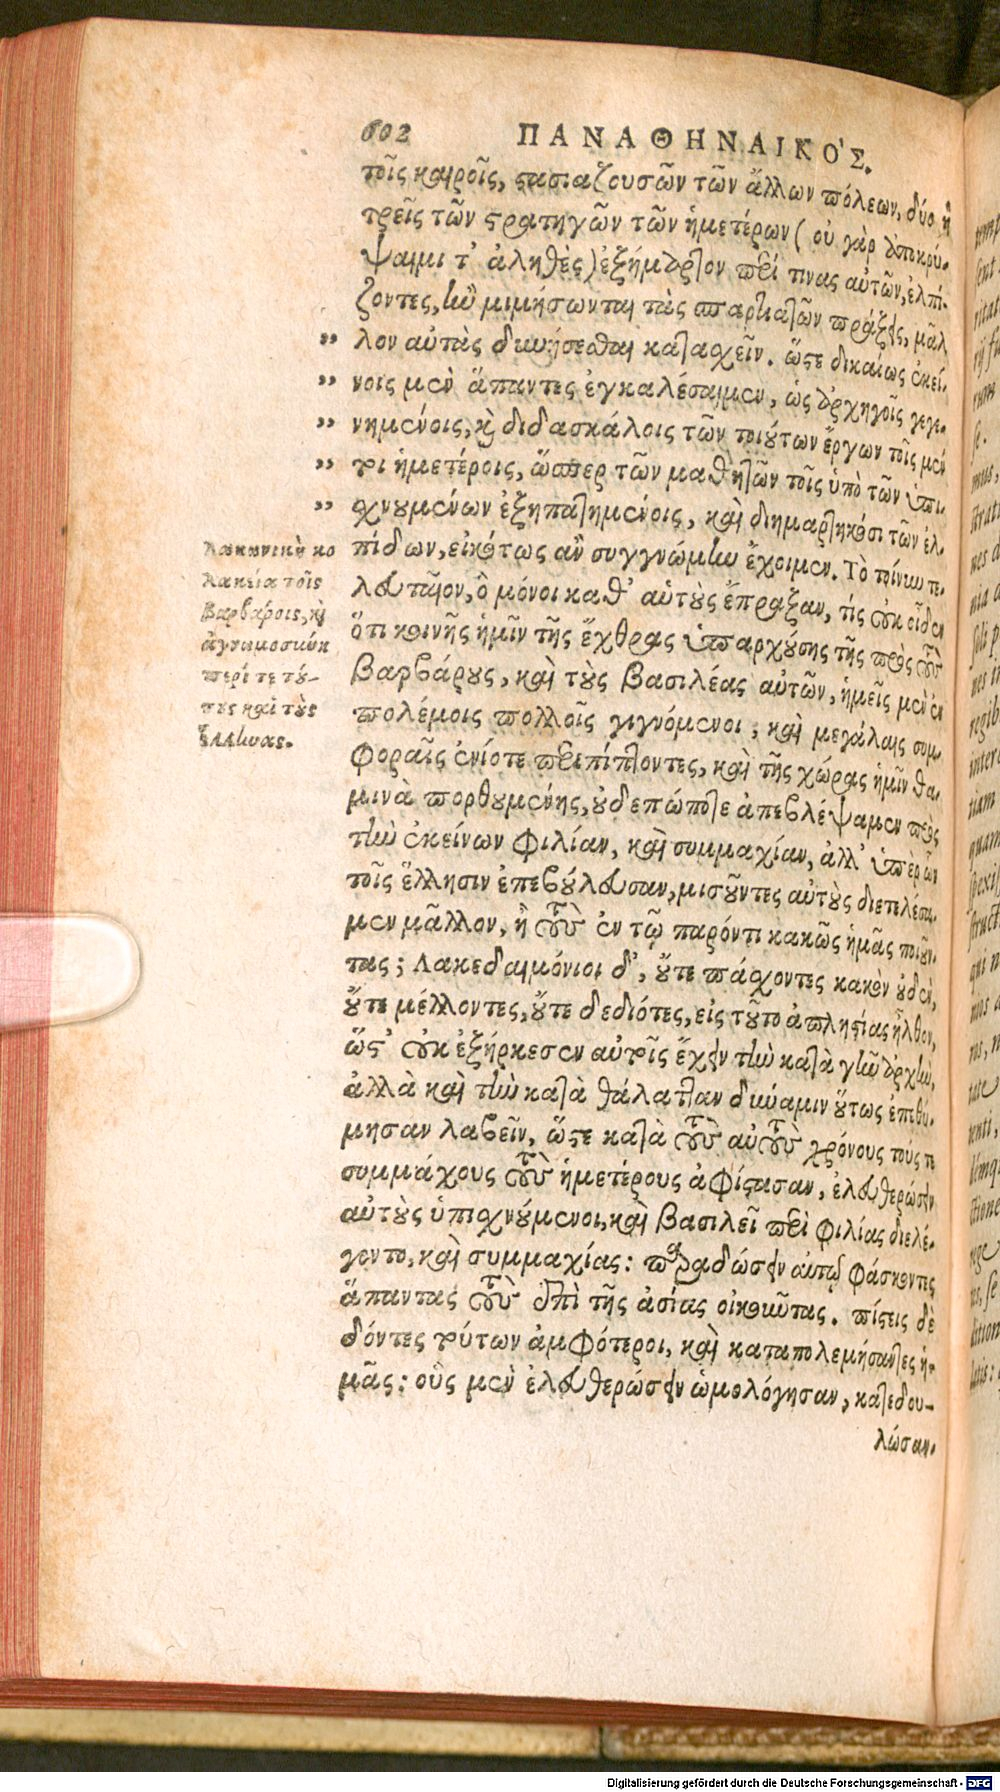 602 ΠΑΝΑΘΗΝΑΙΚΟΣ.
τοῖς καιροῖς, στασιαζουσῶν τῶν ἄλλων πόλεων, δύο ἢ
τρεῖς τῶν στρατηγῶν τῶν ἡμετέρων (οὐ γὰρ ἀποκρύ-
ψαιμι τ' ἀληθὲς) ἐξήμαρτον περί τινας αὐτῶν, ἐλπί-
ζοντες, ἢν μιμήσωνται τὰς σπαρτιατῶν πράξεις, μᾶλ
λον αὐτὰς δυνήσεσθαι κατασχεῖν. ὥστε δικαίως ἐκεί-
νοις μὲν ἅπαντες ἐγκαλέσαιμεν, ὡς ἀρχηγοῖς γεγε-
νημένοις, καὶ διδασκάλοις τῶν τοιούτων ἔργων τοῖς μέν
τοι ἡμετέροις, ὥσπερ τῶν μαθητῶν τοῖς ὑπὸ τῶν ὑπι-
σχνουμένων ἐξηπατημένοις, καὶ διημαρτηκόσι τῶν ἐλ-
πίδων, εἰκότως ἂν συγγνώμην ἔχοιμεν. Τὸ τοίνυν τε-
λευταῖον, ὃ μόνοι καθ' αὑτοὺς ἔπραξαν, τίς οὐκ οἶδεν
ὅτι κοινῆς ἡμῖν τῆς ἔχθρας ὑπαρχούσης τῆς πρὸς τοὺς
βαρβάρους, καὶ τοὺς βασιλέας αὐτῶν, ἡμεῖς μὲν ἐν
πολέμοις πολλοῖς γιγνόμενοι, καὶ μεγάλαις συμ-
φοραῖς ἐνίοτε περιπίπτοντες, καὶ τῆς χώρας ἡμῖν θα-
μινὰ πορθουμένης, οὐδεπώποτε ἀπεβλέψαμεν πρὸς
τὴν ἐκείνων φιλίαν, καὶ συμμαχίαν, ἀλλ' ὑπὲρ ὧν
τοῖς ἕλλησιν ἐπεβούλευσαν, μισοῦντες αὐτοὺς διετελέσα-
μεν μᾶλλον, ἢ τοὺς ἐν τῷ παρόντι κακῶς ἡμᾶς ποιοῦν-
τας; Λακεδαιμόνιοι δ', οὔτε πάσχοντες κακὸν οὐδὲν,
οὔτε μέλλοντες, οὔτε δεδιότες, εἰς τοῦτο ἀπληστίας ἦλθον,
ὥστ' οὐκ ἐξήρκεσεν αὐτοῖς ἔχειν τὴν κατὰ γῆν ἀρχὴν,
ἀλλὰ καὶ τὴν κατὰ θάλατταν δύναμιν οὕτως ἐπεθύ-
μησαν λαβεῖν, ὥστε κατὰ τοὺς αὐτοὺς χρόνους τούς τε
συμμάχους τοὺς ἡμετέρους ἀφίστασαν, ἐλευθερώσειν
αὐτοὺς ὑπισχνούμενοι, καὶ βασιλεῖ περὶ φιλίας διελέ-
γοντο, καὶ συμμαχίας: παραδώσειν αὐτῷ φάσκοντες
ἅπαντας τοὺς ἐπὶ τῆς ἀσίας οἰκοῦντας. πίστεις δὲ
δόντες τούτων ἀμφότεροι, καὶ καταπολεμήσαντες ἡ-
μᾶς: οὓς μὲν ἐλευθερώσειν ὡμολόγησαν, κατεδου-
λώσαν-
Λακωνικὴ κο
λακεία τοῖς
βαρβάροις, καὶ
ἀγνωμοσύνη
περί τε τού-
τους καὶ τοὺς
ἕλληνας.